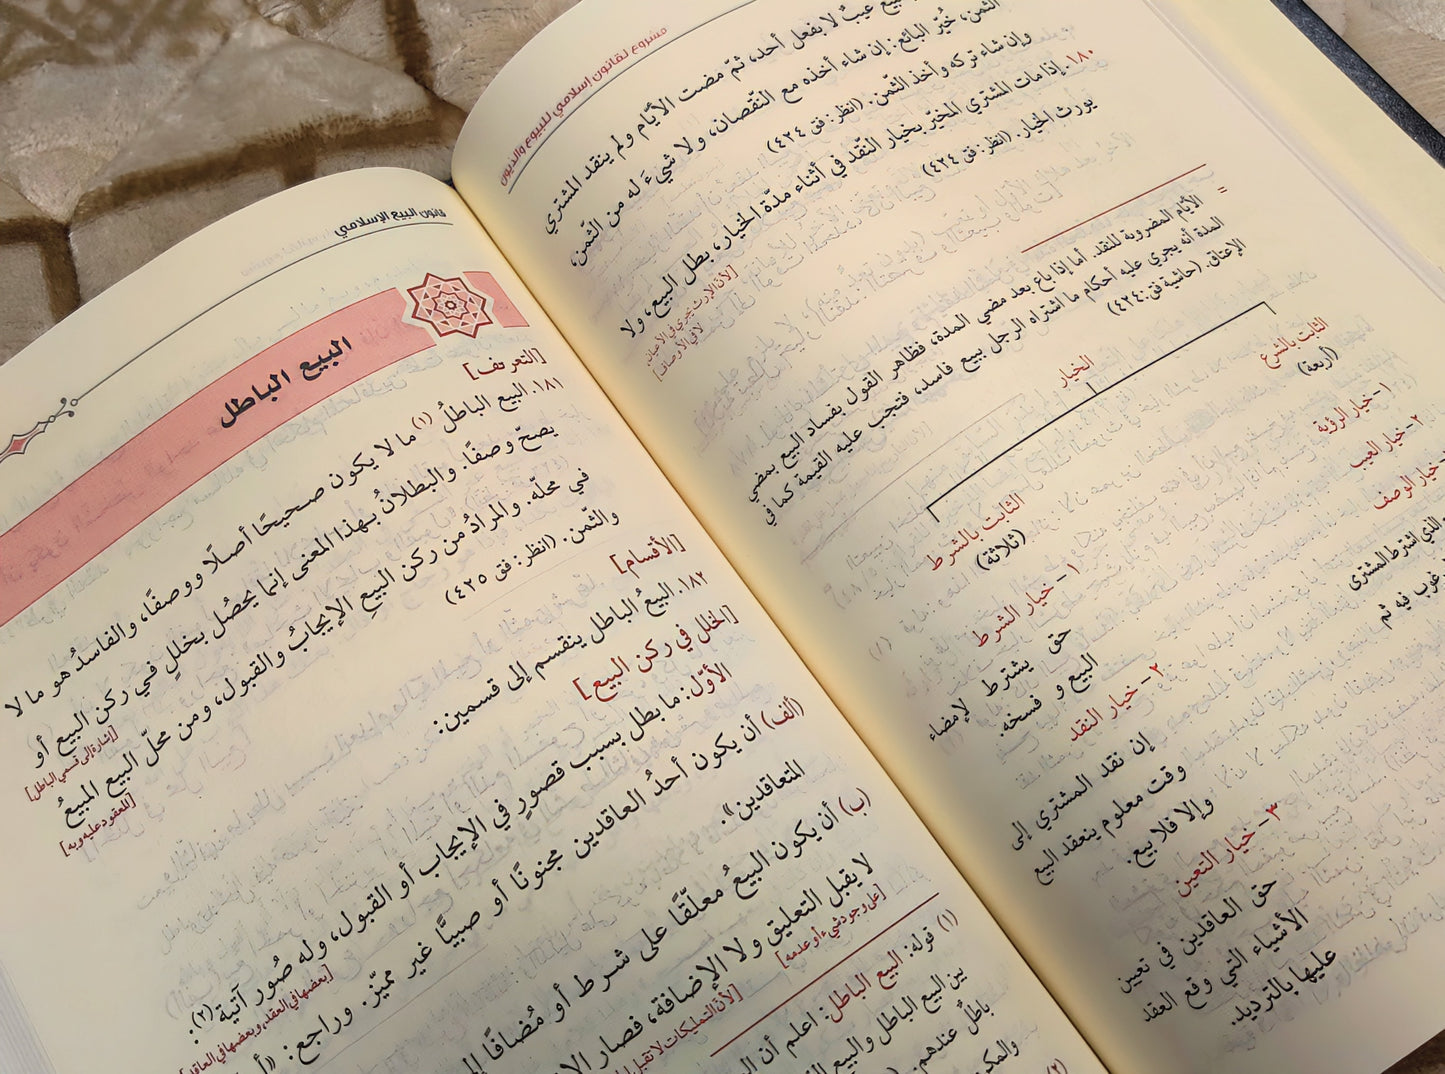 مشروع لقانون إسلامي للبيوع والديون
بيع عيبٌ لا يفعل أحد، ثمّ مضت الأيّام ولم ينقد المشتري
الثمن، خُيّر البائع: إن شاء أخذه مع النّقصان، ولا شيءَ له من الثّمن،
وإن شاء تركه وأخذ الثّمن. (انظر: فق ٤٢٤)
١٨٠. إذا مات المشتري المخيّر بخيار النّقد في أثناء مدّة الخيار، بطل البيع، ولا
[لأنّ الإرث يجري في الأعيان، لا في الأوصاف]
يورث الخيار. (انظر: فق ٤٢٤)
= الأيّام المضروبة للنقد. أما إذا باع بعد مضي المدة، فظاهر القول بفساد البيع بمضي
المدة أنه يجري عليه أحكام ما اشتراه الرجل ببيع فاسد، فتجب عليه القيمة كما في
الإعتاق. (حاشية فق: ٤٢٤)
الخيار
الثابت بالشرع
(أربعة)
١- خيار الرؤية
٢- خيار العيب
خيار الوصف
الذي اشترط المشتري
غرب فيه ثم
الثابت بالشرط
(ثلاثة)
١ - خيار الشرط
حق يشترط لإمضاء
البيع و فسخه.
٢ - خيار النقد
إن نقد المشتري إلى
وقت معلوم ينعقد البيع
وإلا فلا بيع.
٣ - خيار التعيين
حق العاقدين في تعيين
الأشياء التي وقع العقد
عليها بالترديد.
قانون البيع الإسلامي
البيع الباطل
[التعريف]
١٨١. البيع الباطلُ (١) ما لا يكون صحيحًا أصلًا ووصفًا، والفاسدُ هو ما لا
يصحّ وصفًا. والبطلانُ بهذا المعنى إنما يحصُل بخللٍ في ركن البيع أو
[إشارة إلى قسمي الباطل]
في محلّه. والمرادُ من ركن البيعِ الإيجابُ والقبول، ومن محلّ البيع المبيعُ
[المعقود عليه وبه]
والثّمن. (انظر: فق ٤٢٥)
[الأقسام]
١٨٢. البيعُ الباطل ينقسم إلى قسمين:
[الخلل في ركن البيع]
الأوّل: ما بطل بسبب قصورٍ في الإيجاب أو القبول، وله صُور آتية (٢):
[بعضها في العقد، وبعضها في العاقد]
(ألف) أن يكون أحدُ العاقدين مجنونًا أو صبيًّا غير مميّز. وراجع:
المتعاقدين".
(ب) أن يكون البيعُ معلّقًا على شرط أو مُضافًا
[على وجود شيء أو عدمه]
لا يقبل التعليق ولا الإضافة، فصار
[لأنّ التمليكات لا تقبل
(١) قوله: البيع الباطل: اعلم أن
بين البيع الباطل والبيع
باطلٌ عندهم.
(٢)